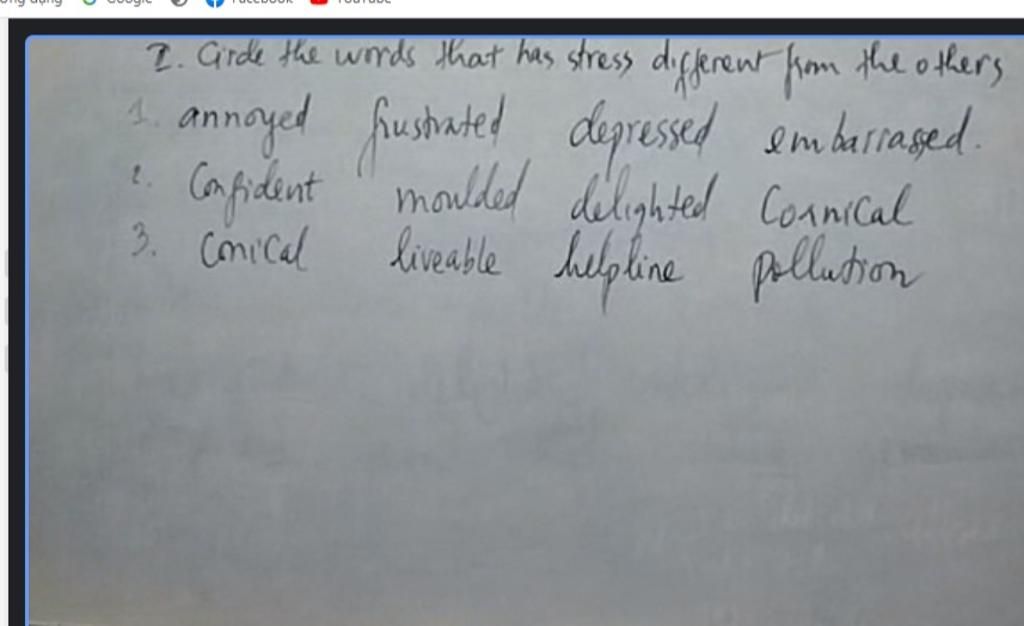 ứng dụng Google Facebook YouTube
I. Circle the words that has stress different from the others
1. annoyed frustrated depressed embarrassed.
2. Confident moulded delighted Coanical
3. Conical liveable helpline pollution